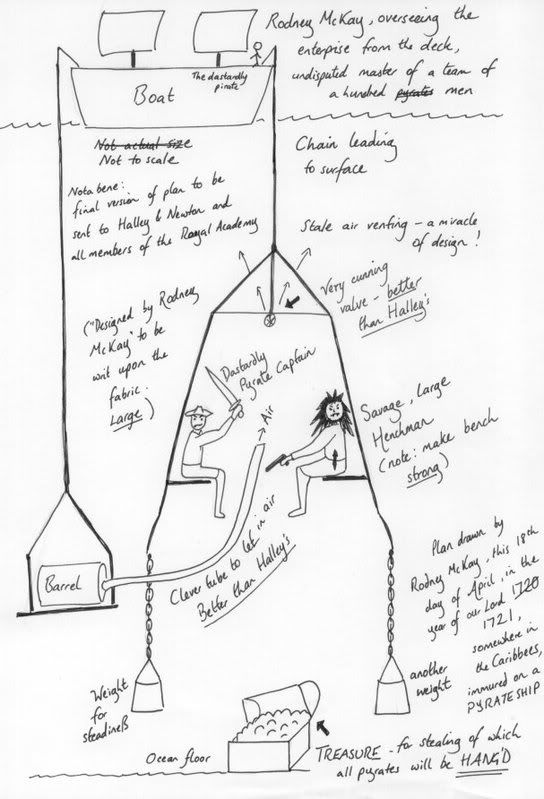 Rodney McKay, overseeing the
enterprise from the deck,
undisputed master of a team of
a hundred pyrates men
The dastardly
pirate
Boat
Not actual size
Not to scale
Chain leading
to surface
Nota bene:
final version of plan to be
sent to Halley & Newton and
all members of the Royal Academy
Stale air venting - a miracle
of design!
Very cunning
valve - better
than Halley's
("Designed by Rodney
McKay" to be
writ upon the
fabric.
Large)
Dastardly
Pyrate Captain
Air
Savage, large
Henchman
(note: make bench
strong)
Barrel
Clever tube to let in air
Better than Halley's
Plan drawn by
Rodney McKay, this 18th
day of April, in the
year of our Lord 1720
1721,
somewhere in
the Caribbees,
immured on a
PYRATESHIP
Weight
for
steadineß
another
weight
Ocean floor
TREASURE - for stealing of which
all pyrates will be HANG'D